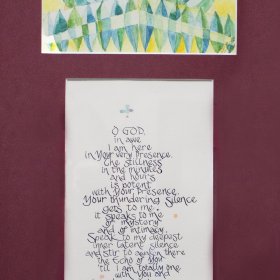 O GOD,
in awe
I am here
in Your very presence.
The stillness
in the minutes
and hours
is potent
with Your Presence.
Your thundering silence
gets to me.
it speaks to me
of mystery
and of intimacy.
Speak to my deepest
inner latent silence
and stir to awaken there
the Echo of You
'til I am totally one
with You and